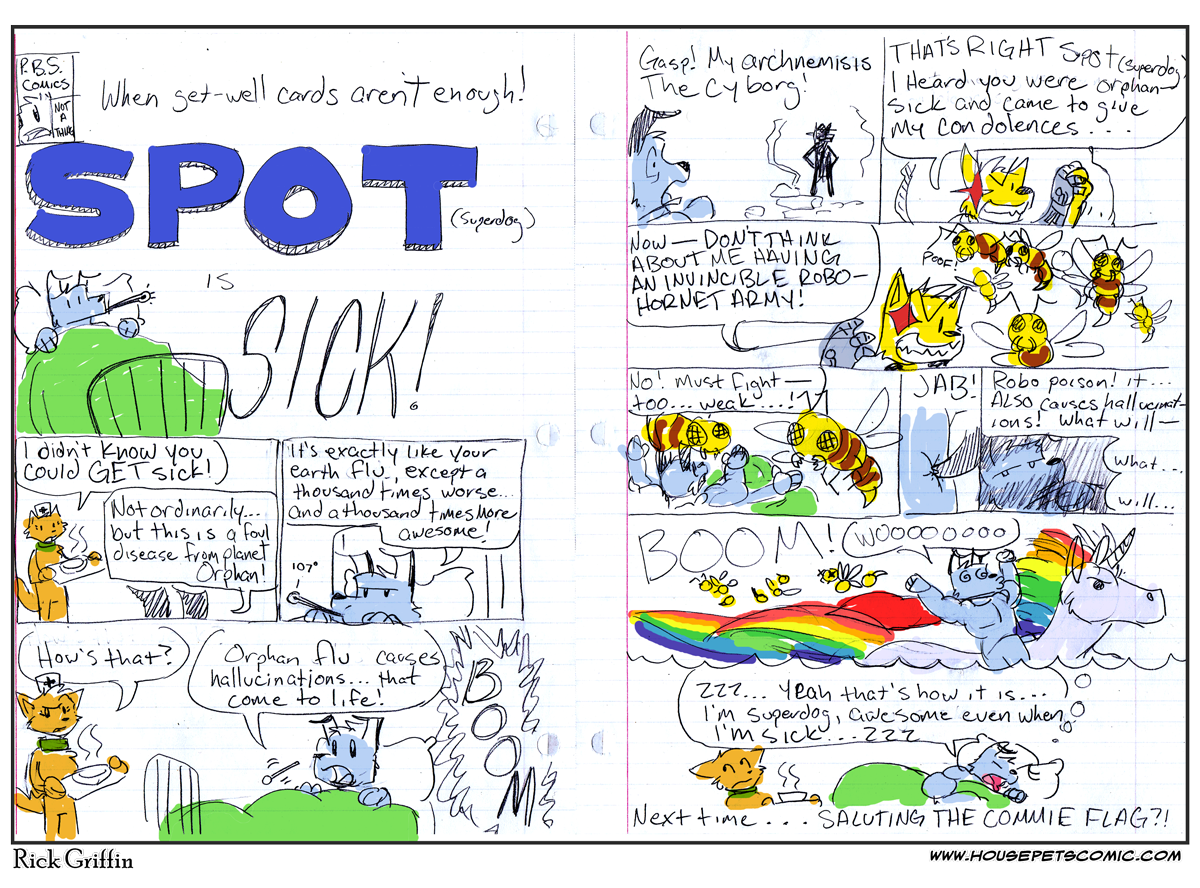 P.B.S.
Comics
NOT
A
THING
When get-well cards aren't enough!
SPOT
(superdog)
is
SICK!
I didn't know you
could GET sick!
Not ordinarily...
but this is a foul
disease from planet
Orphan!
It's exactly like your
earth flu, except a
thousand times worse...
and a thousand times more
awesome!
107°
How's that?
Orphan flu causes
hallucinations... that
come to life!
BOOM
Gasp! My archnemisis
The Cyborg!
THAT'S RIGHT Spot (superdog)
I Heard you were orphan-
sick and came to give
my condolences....
Now— DON'T THINK
ABOUT ME HAVING
AN INVINCIBLE ROBO-
HORNET ARMY!
POOF!
No! Must fight—
too... weak....!
JAB!
Robo poison! it...
ALSO causes hallucinat-
ions! what will—
what...
will...
BOOM!
WOOOOOOOO
ZZZ... Yeah that's how it is...
I'm superdog, awesome even when
I'm sick...zzz
Next time.... SALUTING THE COMMIE FLAG?!
Rick Griffin
WWW.HOUSEPETSCOMIC.COM